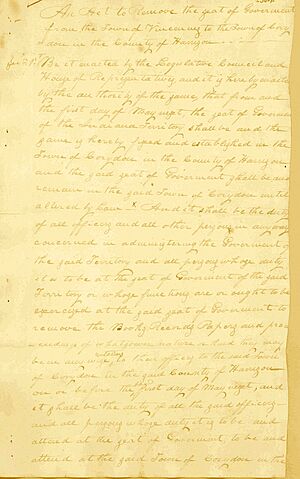 An Act to Remove the seat of Goverment
from the Town of Vincennes to the Town of Cory
=don in the County of Harrison
Be it enacted by the Legislative Council and
House of Representatives, and it is hereby enacted
by the authority of the same, that from and
the first day of May next, the seat of Goverment
of the Indiana Territory shall be and the
same is hereby fixed and established in the
Town of Corydon in the County of Harrison
and the said seat of Goverment shall be and
remain in the said Town of Corydon until
altered by law x And it shall be the duty
of all officers and all other persons in anyway
concerned in administering the Goverment of
the said Territory and all persons whose duty
it is to be at the seat of Goverment of the said
Territory or whose functions are or ought to be
exercised at the said seat of Goverment to
remove the Books Records Papers and proce
=edings of whatsoever nature or kind they may
be in any wise relating to their offices to the said Town
of Corydon in the said County of Harrison
on or before the first day of May next, and
it shall be the duty of all the said officers
and all persons whose duty it is to be and
attend at the seat of Goverment, to be and
attend at the said Town of Corydon in the